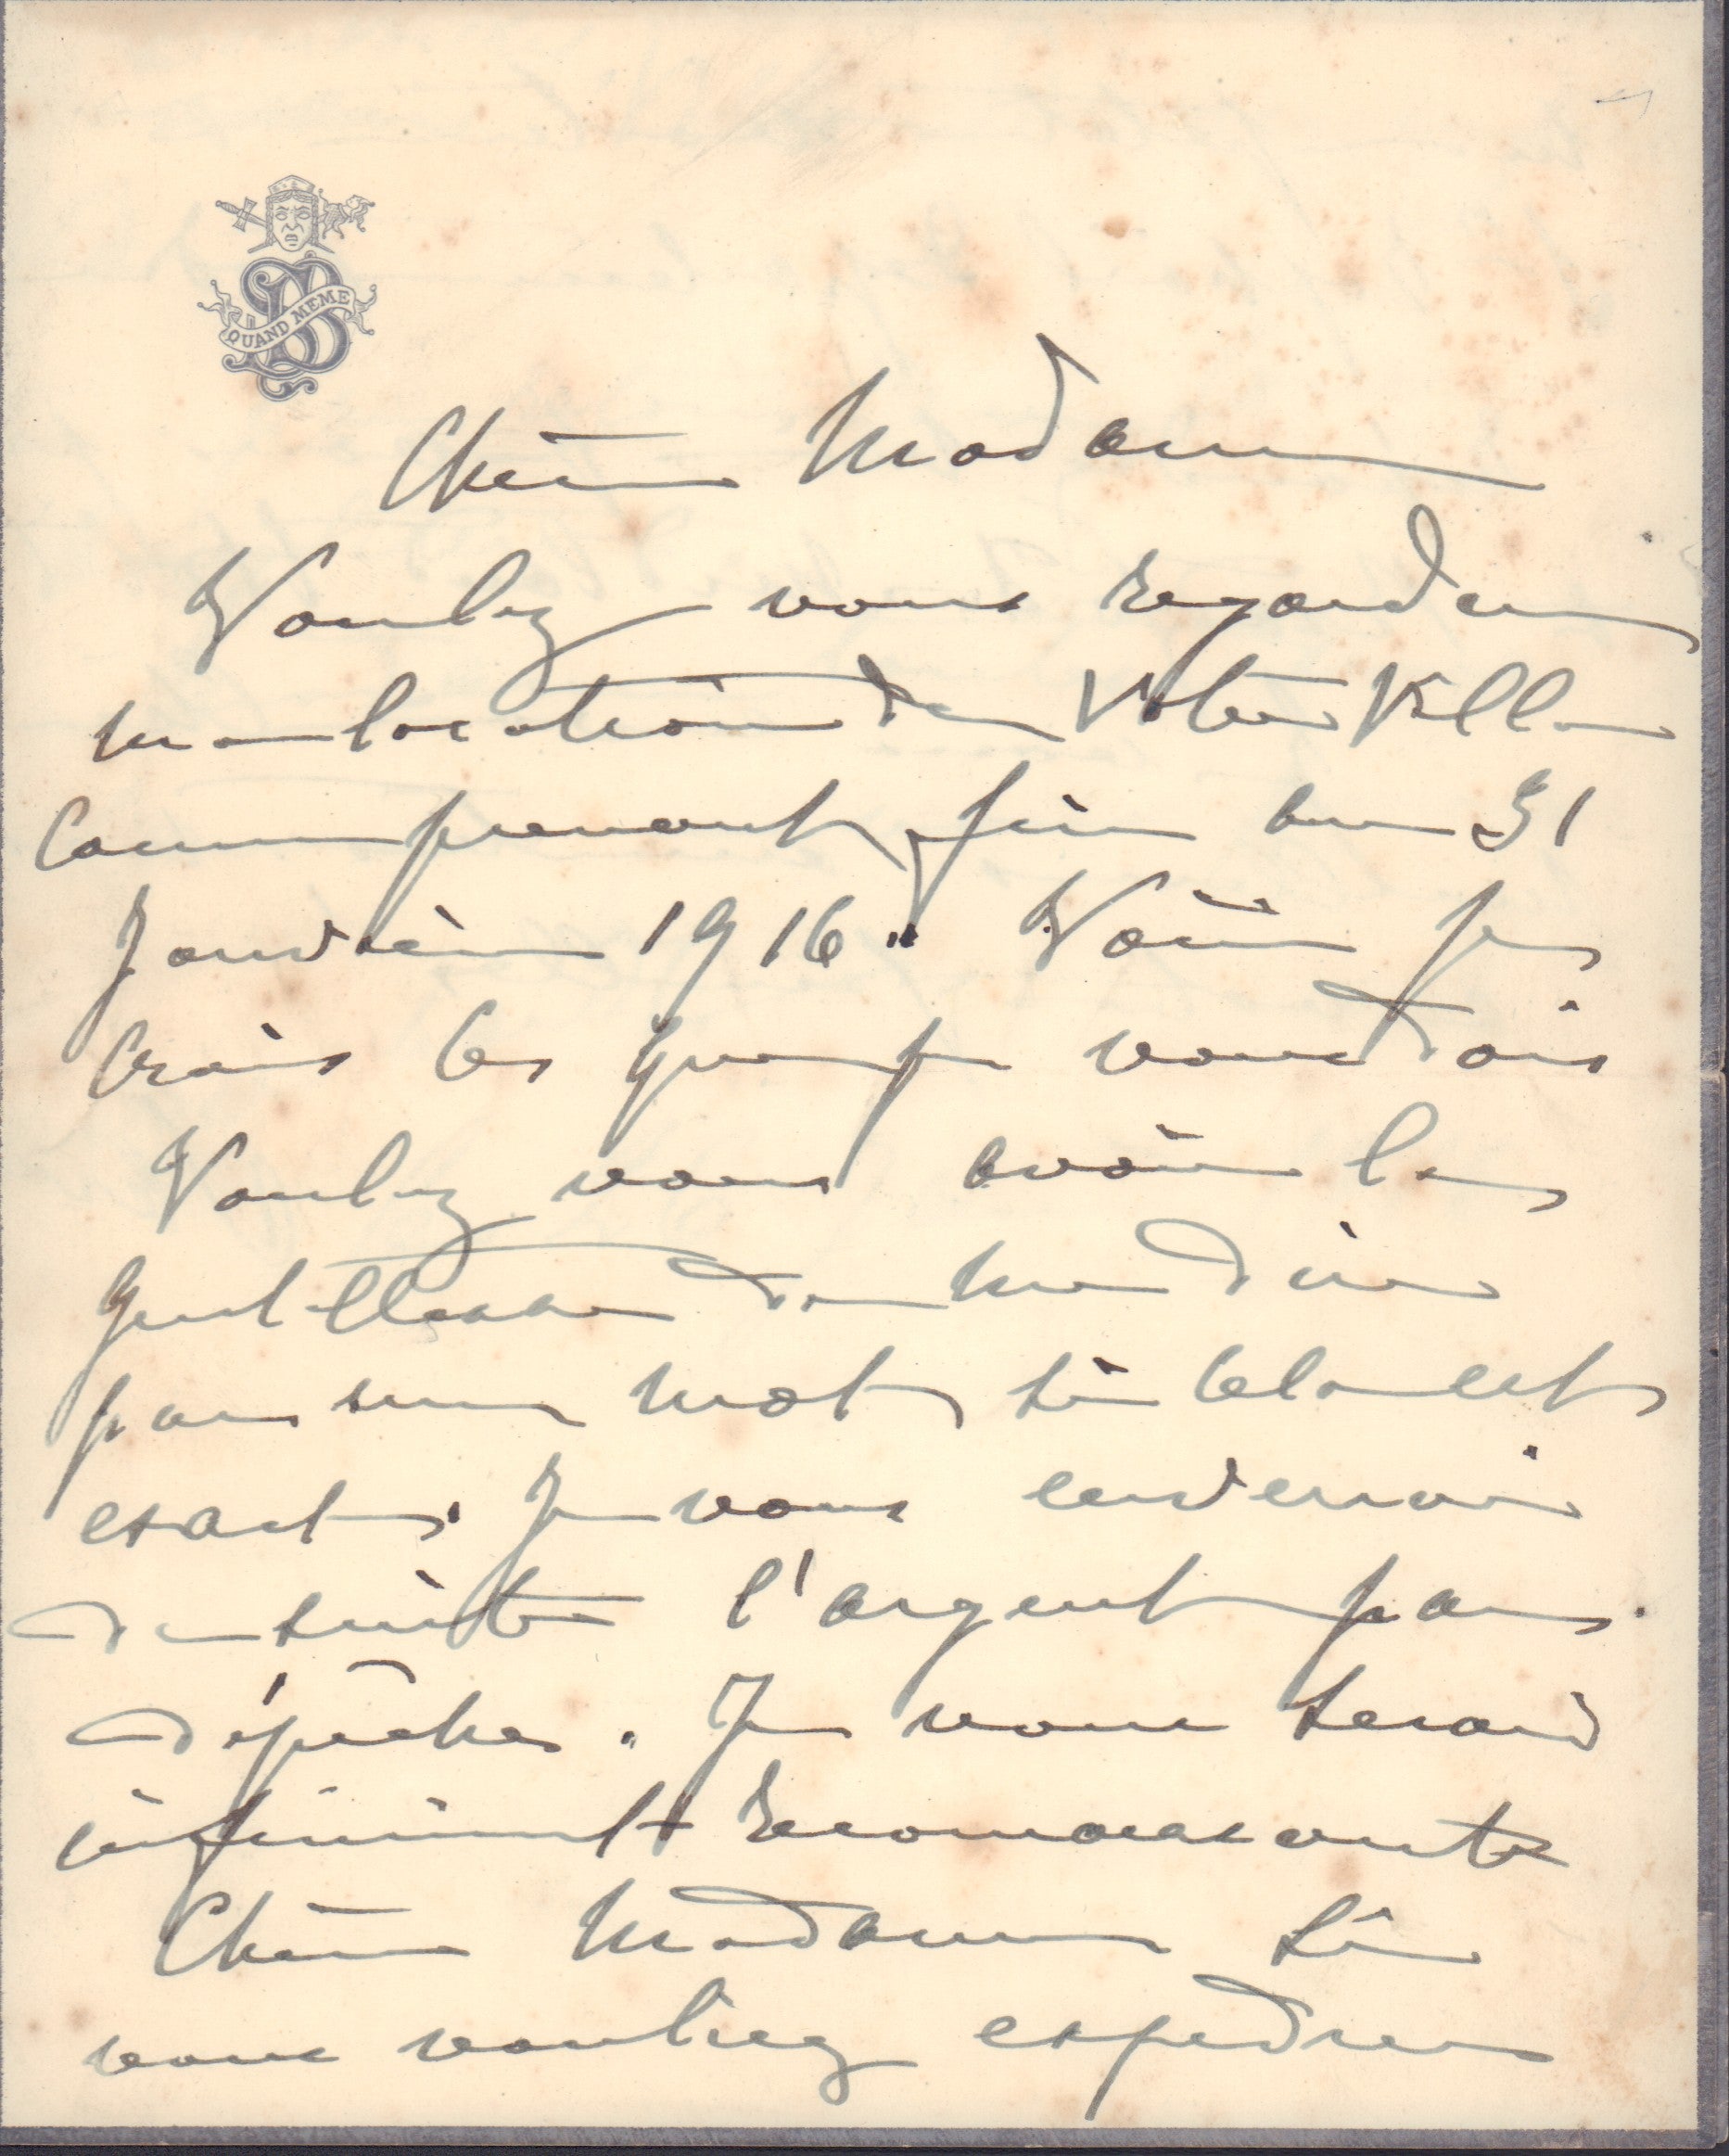 QUAND MEME
Chère Madame
Voulez vous regarder
ma location de votre Villa
comme prenant fin au 31
Janvier 1916. Voici je
crois ce que je vous dois
Voulez vous avoir la
gentillesse de me dire
par un mot si cela est
exact. Je vous enverrai
de suite l'argent par
dépêche. Je vous serais
infiniment reconnaissante
Chère Madame si
vous vouliez